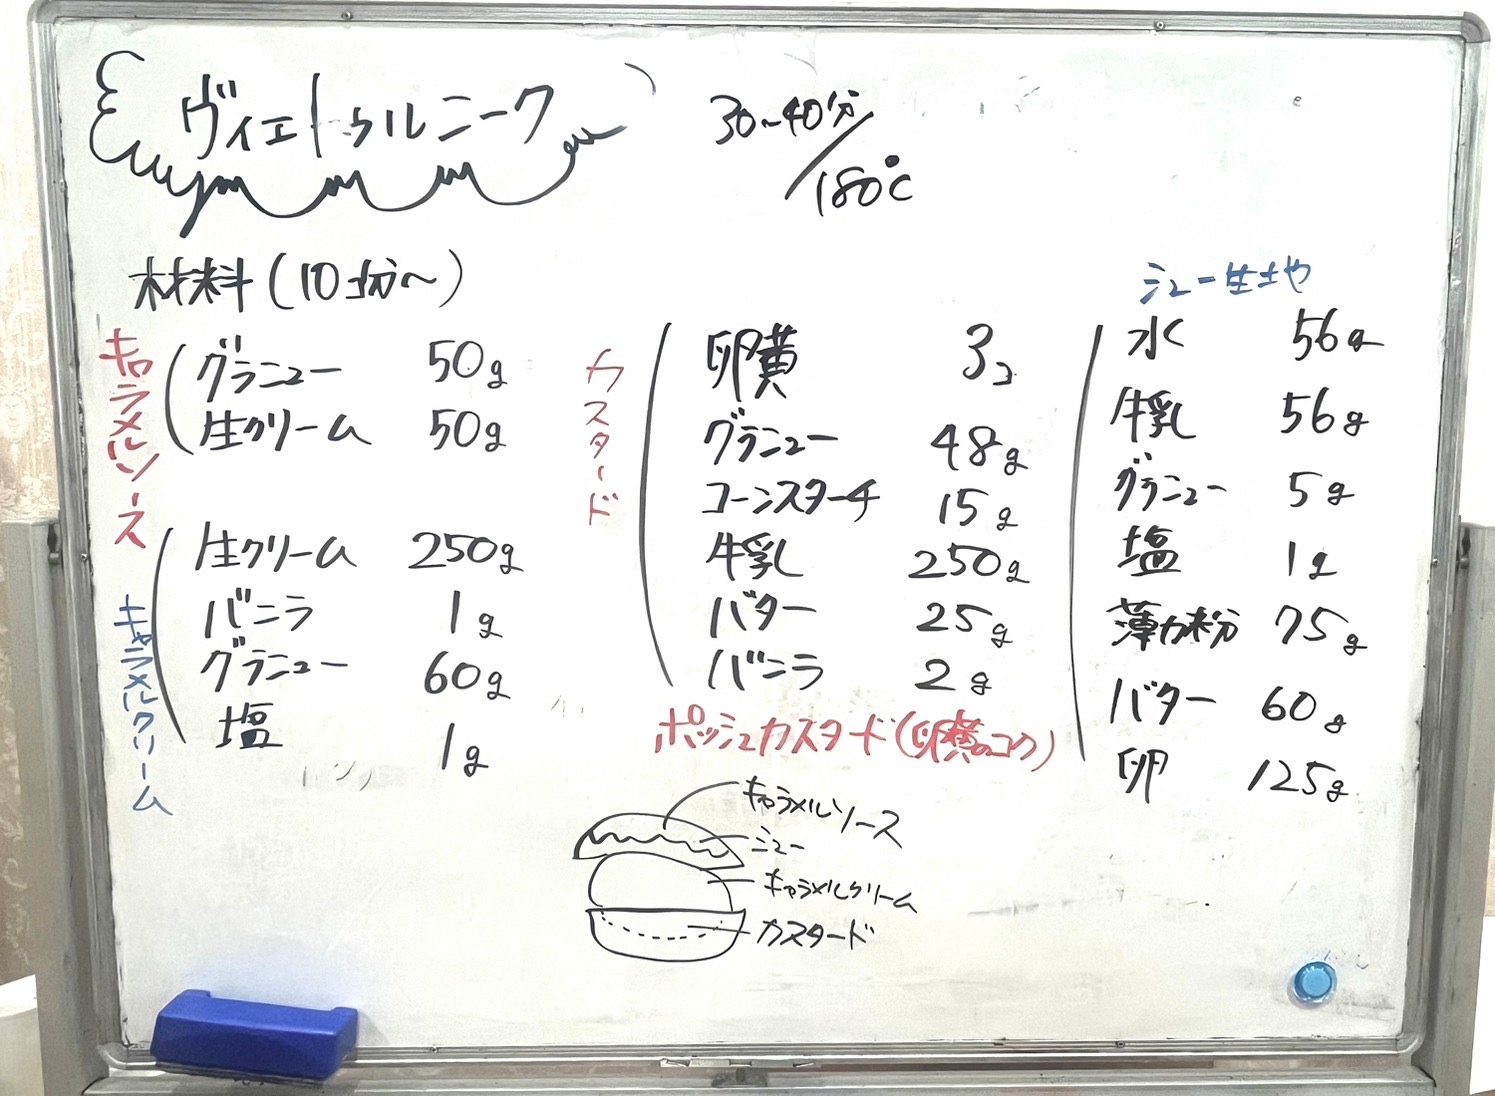 ヴィエトゥルニーク
30~40分/180℃
材料(10コ分~)
キャラメルソース
グラニュー 50g
生クリーム 50g
キャラメルクリーム
生クリーム 250g
バニラ 1g
グラニュー 60g
塩 1g
カスタード
卵黄 3コ
グラニュー 48g
コーンスターチ 15g
牛乳 250g
バター 25g
バニラ 2g
ポッシュカスタード(卵黄のコク)
シュー生地
水 56g
牛乳 56g
グラニュー 5g
塩 1g
薄力粉 75g
バター 60g
卵 125g
キャラメルソース
シュー
キャラメルクリーム
カスタード